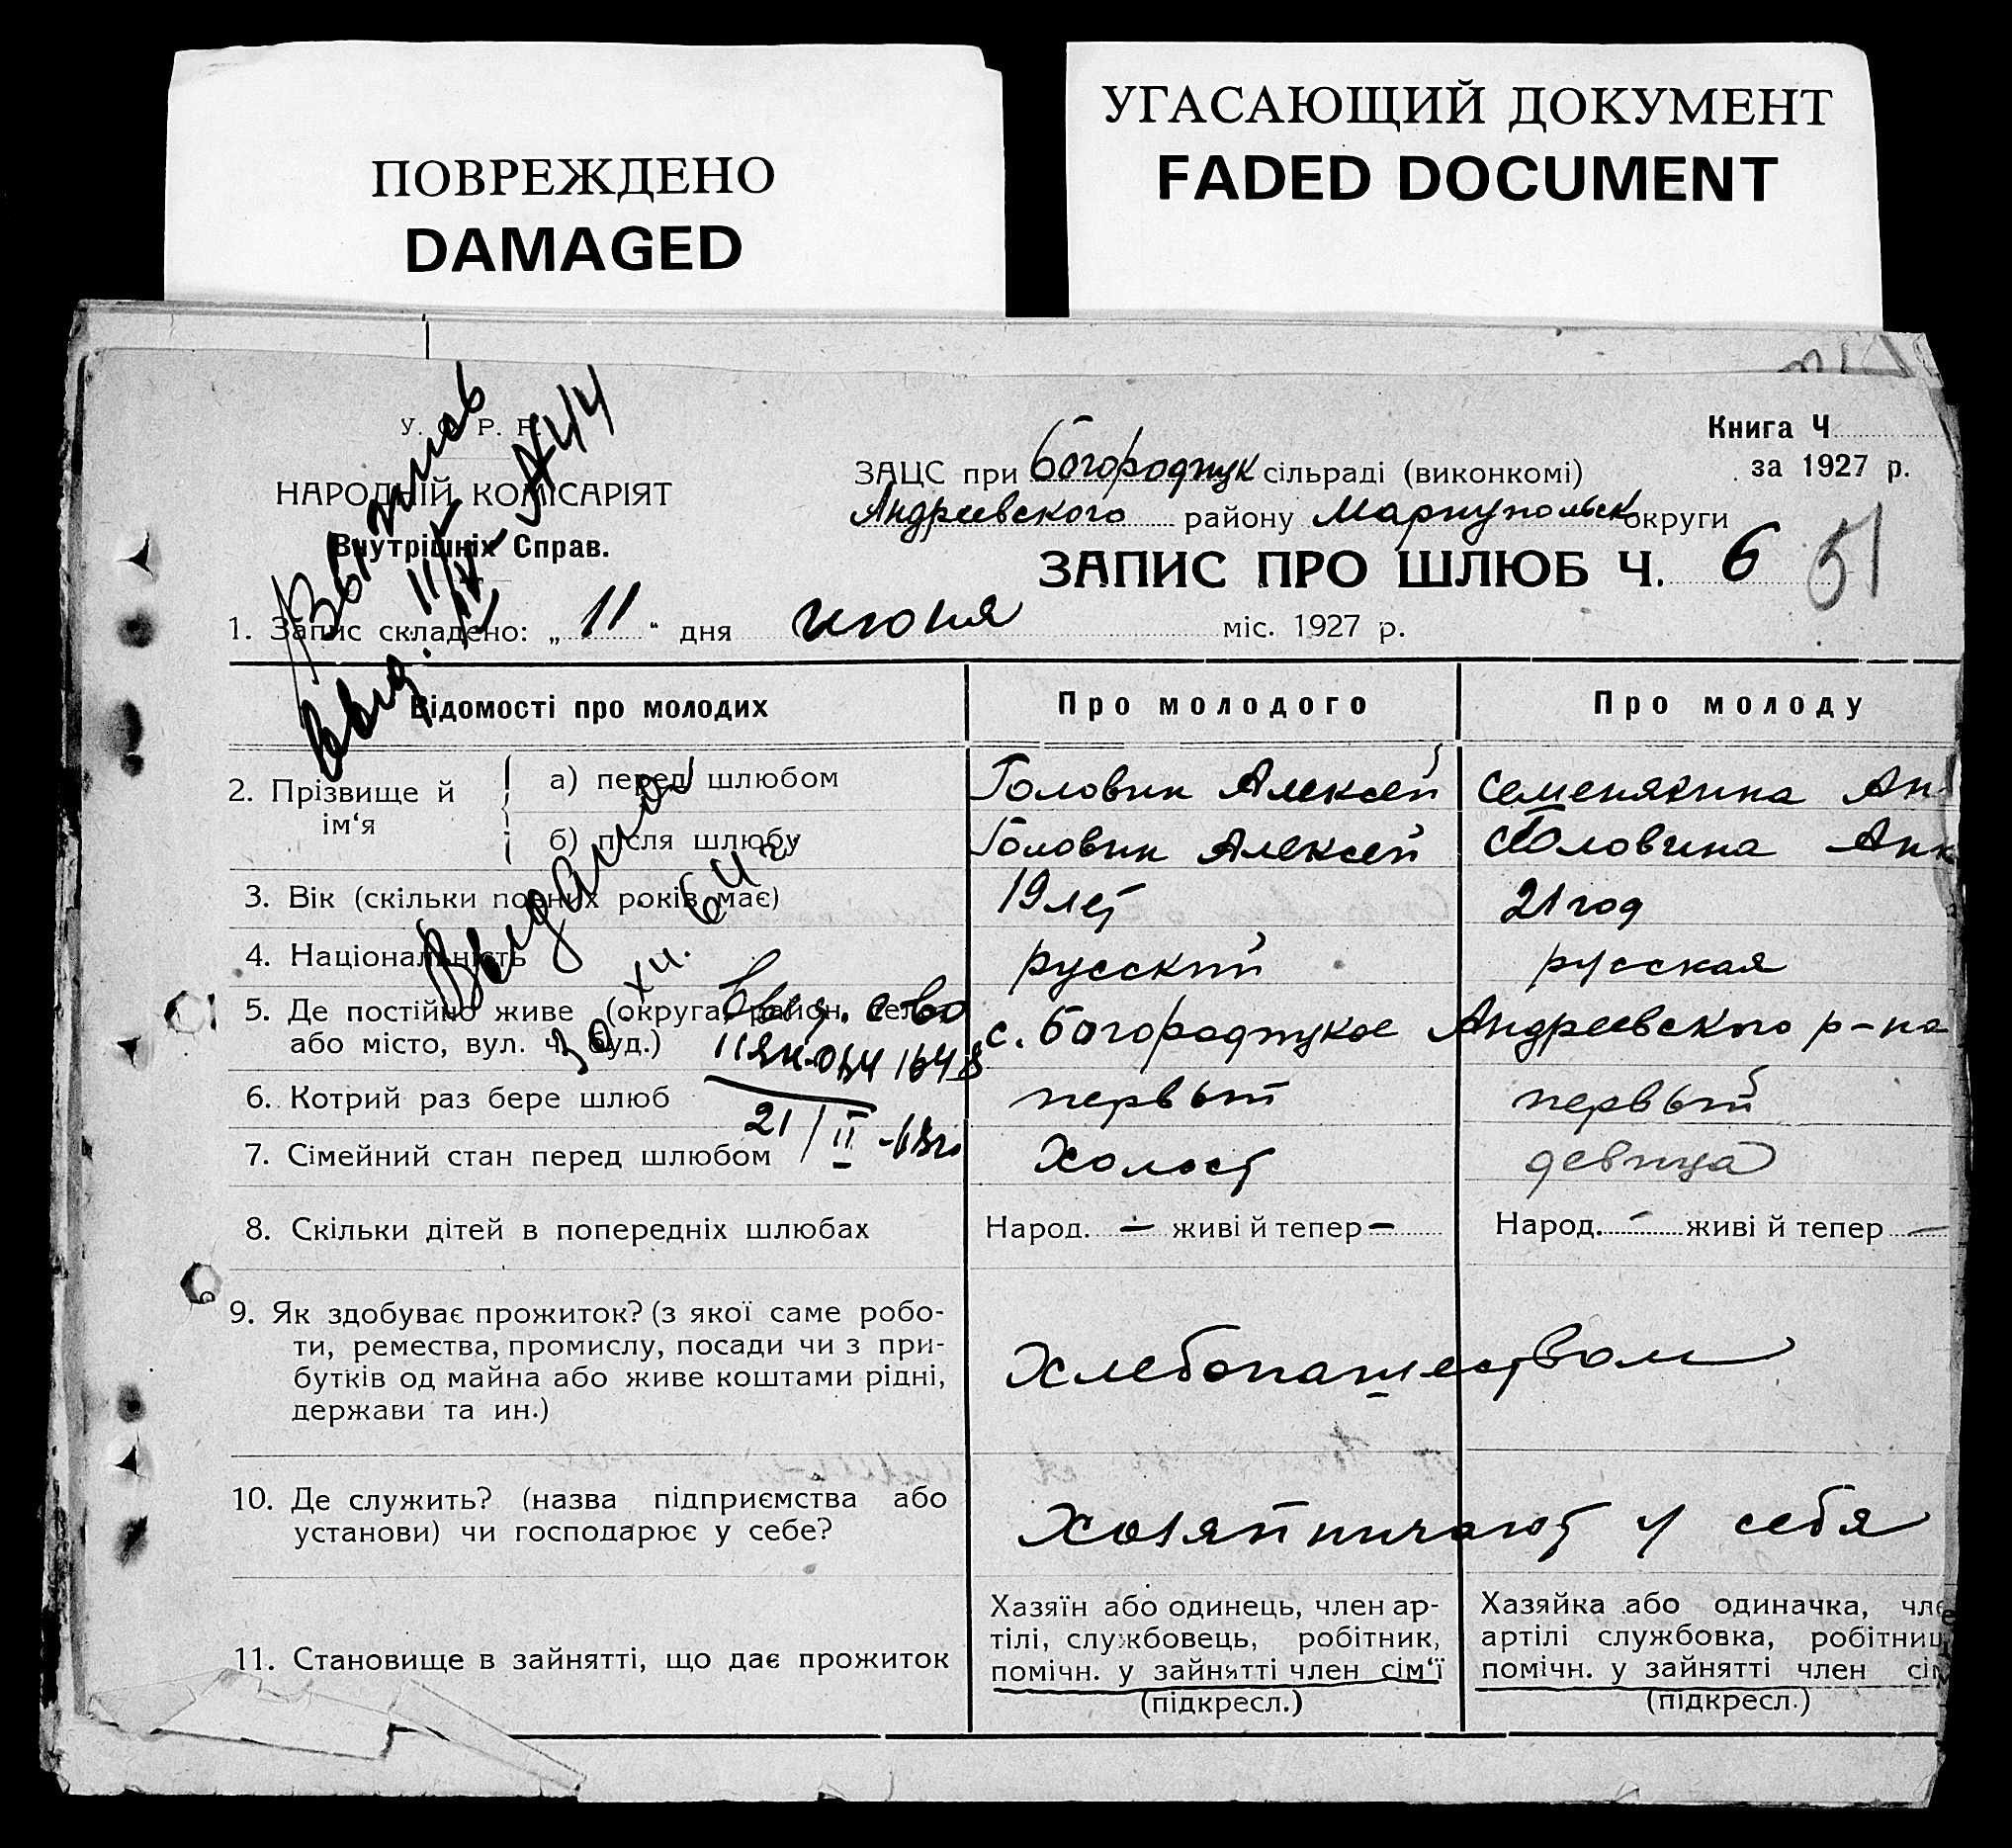 ПОВРЕЖДЕНО
DAMAGED
УГАСАЮЩИЙ ДОКУМЕНТ
FADED DOCUMENT
У. С. Р. Р.
НАРОДНІЙ КОМІСАРІЯТ
Внутрішніх Справ.
Книга Ч
за 1927 р.
ЗАЦС при Богородицк сільраді (виконкомі)
Андреевского району Мариупольск округи
ЗАПИС ПРО ШЛЮБ Ч. 6 51
1. Запис складено: „ 11 " дня июня міс. 1927 р.
Відомості про молодих Про молодого Про молоду
2. Прізвище й ім'я
а) перед шлюбом Головин Алексей Семенякина Ан
б) після шлюбу Головин Алексей Головина Анн
3. Вік (скільки повних років має) 19 лет 21 год
4. Національність русский русская
5. Де постійно живе (округа, район, село
або місто, вул. ч. буд.) с. Богородицкое Андреевского р-на
6. Котрий раз бере шлюб первый первый
7. Сімейний стан перед шлюбом Холост девица
8. Скільки дітей в попередніх шлюбах Народ. — живі й тепер — Народ. — живі й тепер —
9. Як здобуває прожиток? (з якої саме робо-
ти, ремества, промислу, посади чи з при-
бутків од майна або живе коштами рідні,
держави та ин.)
Хлебопашеством
10. Де служить? (назва підприємства або
установи) чи господарює у себе?
Хозяйничают у себя
11. Становище в зайнятті, що дає прожиток
Хазяїн або одинець, член ар-
тілі, службовець, робітник,
помічн. у зайнятті член сім'ї
(підкресл.)
Хазяйка або одиначка, чле
артілі службовка, робітниц
помічн. у зайнятті член сім
(підкресл.)
Выдано
21/II